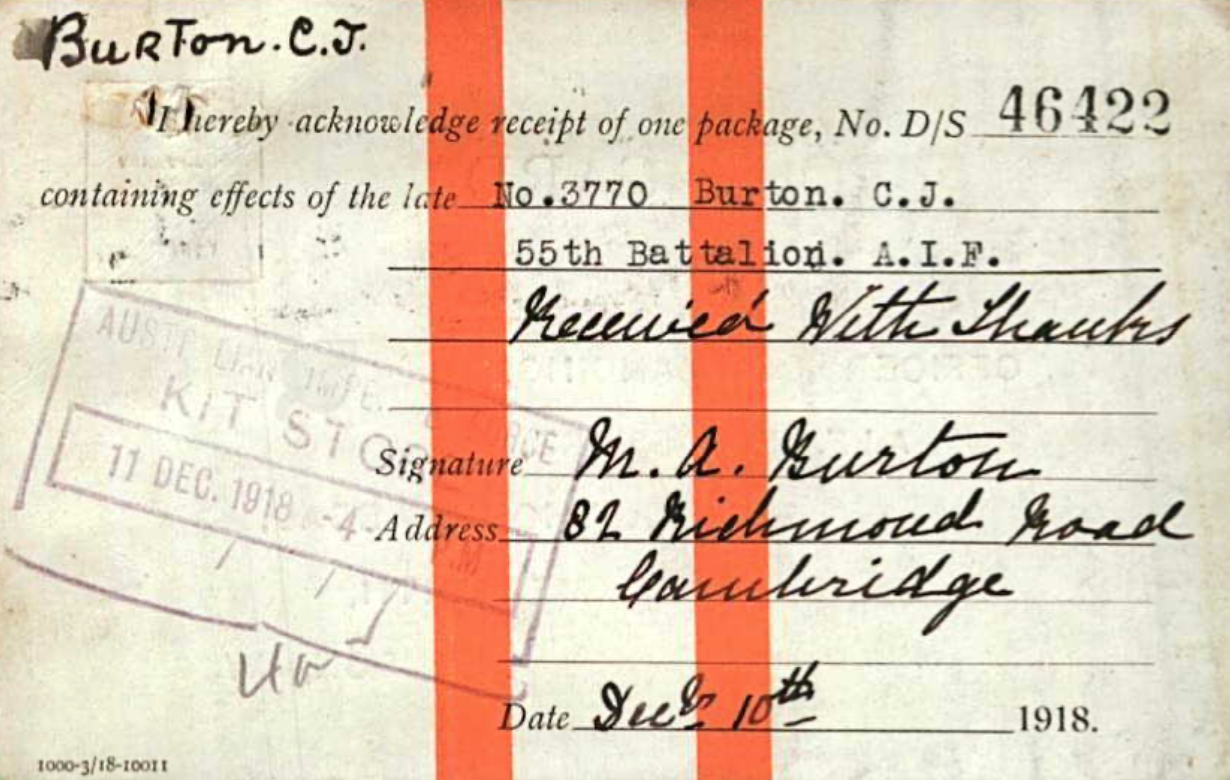 Burton. C.J.
I hereby acknowledge receipt of one package, No. D/S 46422
containing effects of the late No.3770 Burton. C.J.
55th Battalion. A.I.F.
Received With Thanks
KIT STO
11 DEC. 1918 -4-
Signature M. A. Burton
Address 82 Richmond Road
Cambridge
Date Decr 10th 1918.
1000-3/18-10011